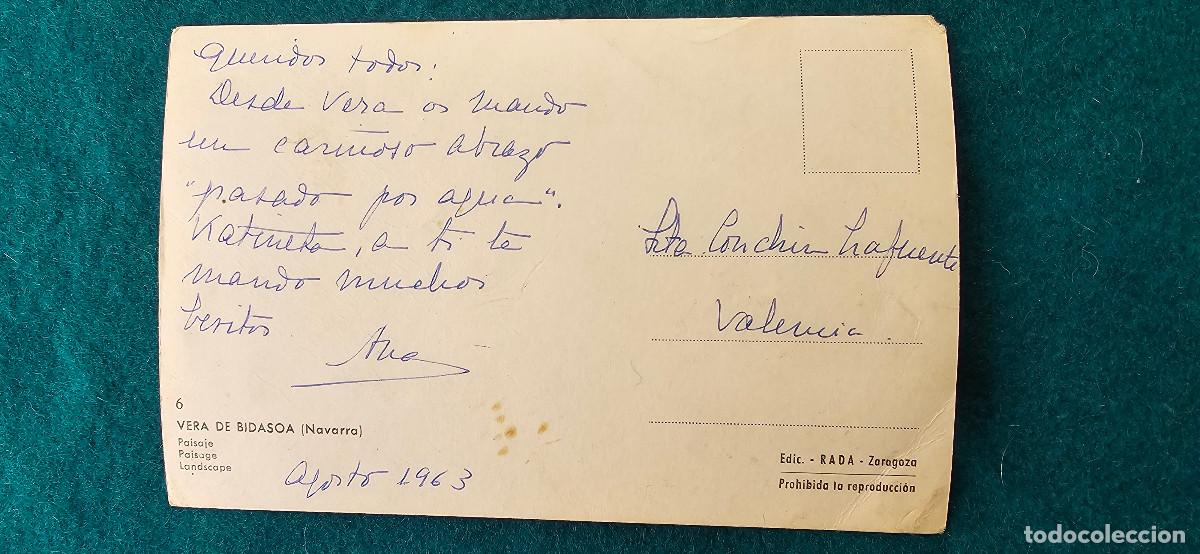 Queridos todos:
Desde Vera os mando
un cariñoso abrazo
"pasado por agua".
Katineta, a ti te
mando muchos
besitos
Ana
Srta Conchin Lafuente
Valencia
6
VERA DE BIDASOA (Navarra)
Paisaje
Paisage
Landscape
Agosto 1963
Edic. - RADA - Zaragoza
Prohibida la reproducción
todocoleccion.net